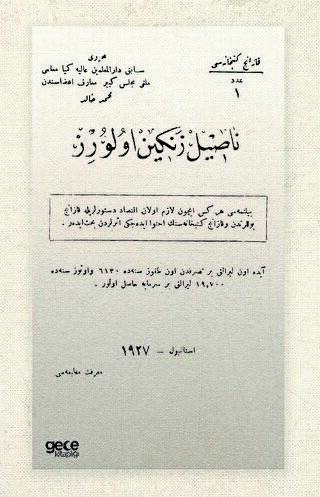 قازانج كتبخانه‌سى
عدد
١
محررى
سابق دار المعلمين عاليه كيميا معلمى
ملى مجلس كبير معارف اعضاسندن
محمد خالد
ناصيل زنكين اولورز
بيلنمه‌سى هر كس ايچون لازم اولان اقتصاد دستورلريله قازانج
يوللرندن وقازانج كتبخانه‌سنك احتوا ايده‌جكى اثرلردن بحث ايدر.
آيده اون ليرالق بر تصرفدن اون طقوز سنه‌ده ٦١٣٠ واوتوز سنه‌ده
١٩,٧٠٠ ليرالق بر سرمايه حاصل اولور.
استانبول — ١٩٢٧
معرفت مطبعه‌سى
gece
kitaplığı